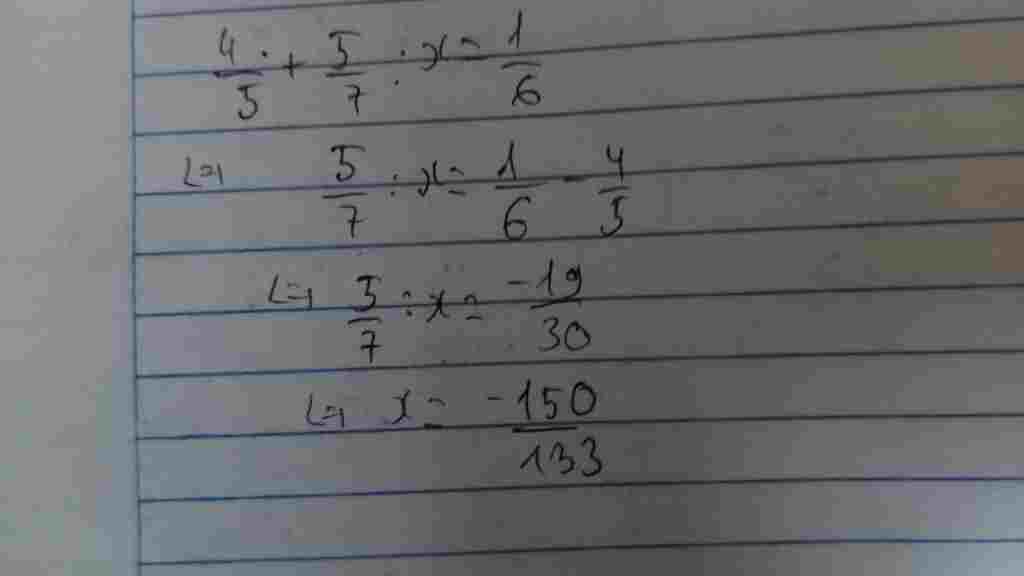 4/5 + 5/7 : x = 1/6
<=> 5/7 : x = 1/6 - 4/5
<=> 5/7 : x = -19/30
<=> x = -150/133